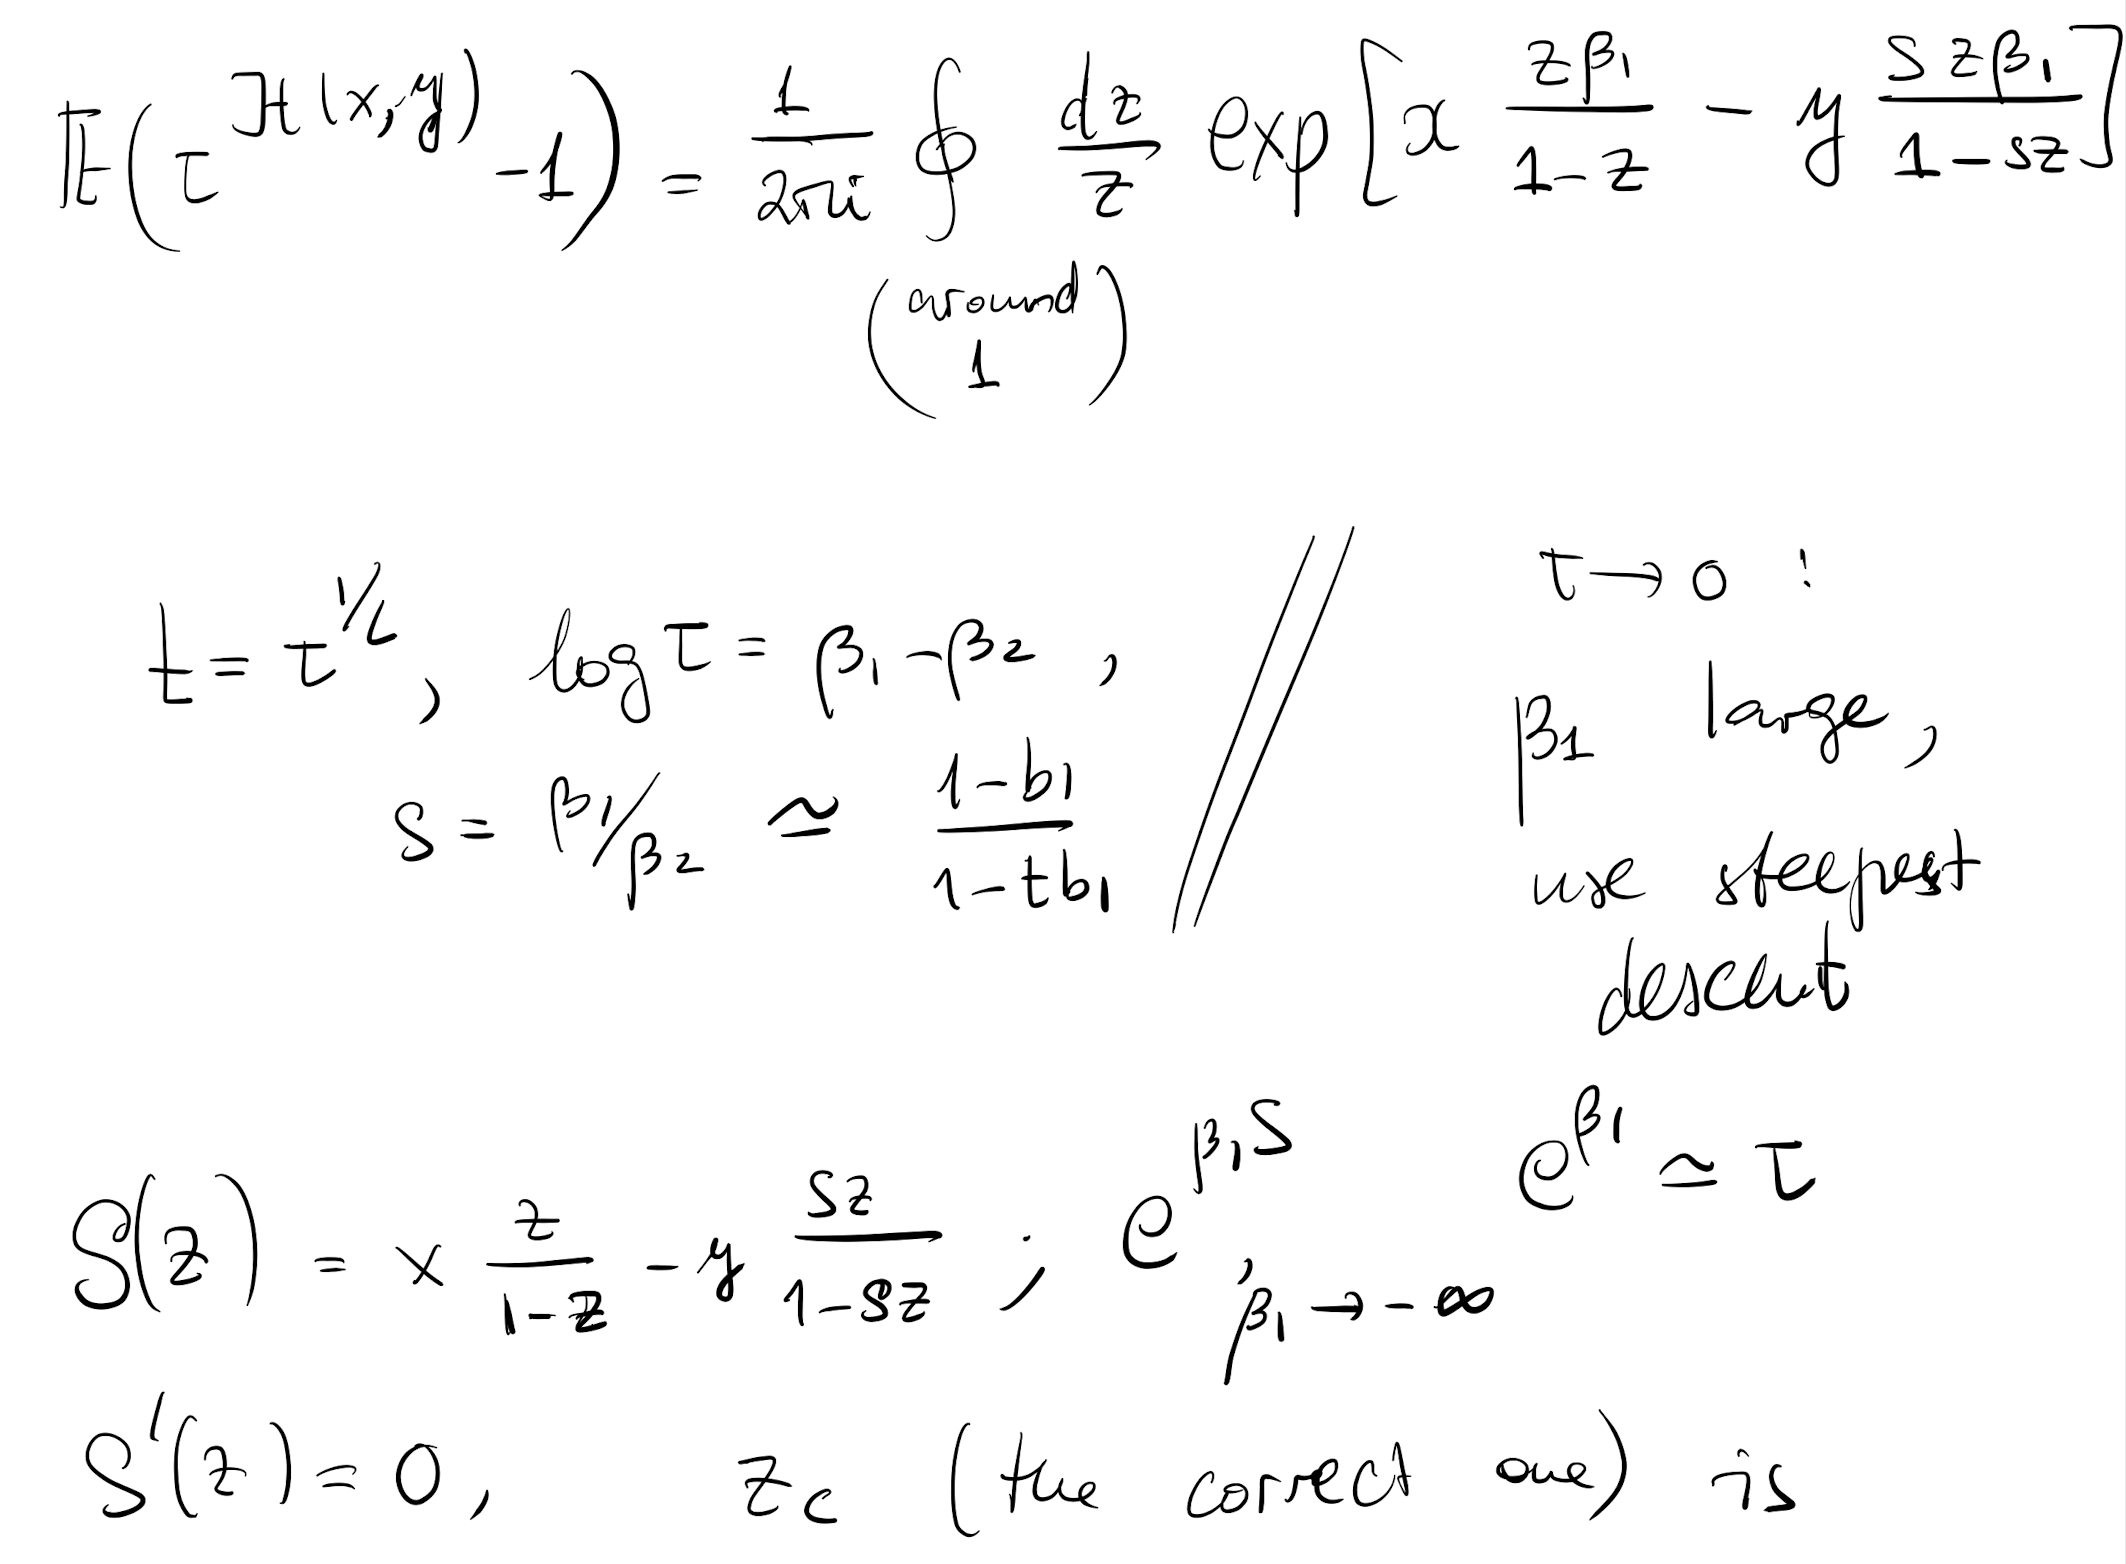 𝔼(τ^{ℋ(x,y)} -1) = 1/(2πi) ∮ dz/z exp[x zβ₁/(1-z) - y szβ₁/(1-sz)]
(around 1)
t = τ^{1/L}, log τ = β₁-β₂, // τ → 0 :
s = β₁/β₂ ≃ (1-b₁)/(1-tb₁) // β₁ large,
use steepest
descent
S(z) = x z/(1-z) - y sz/(1-sz) ; e^{β₁S}, β₁ → -∞ e^{β₁} ≃ τ
S'(z) = 0, z_c (the correct one) is